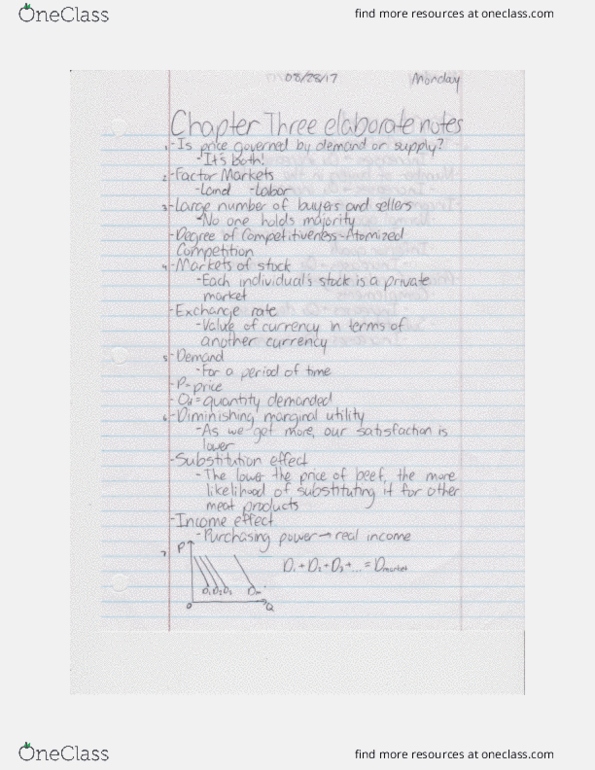 OneClass
find more resources at oneclass.com
08/28/17 Monday
Chapter Three elaborate notes
1. -Is price governed by demand or supply?
-It's both!
2. -Factor Markets
-Land -Labor
3. -Large number of buyers and sellers
-No one holds majority
-Degree of Competitiveness-Atomized
Competition
4. -Markets of stock
-Each individual's stock is a private
market
-Exchange rate
-Value of currency in terms of
another currency
5. -Demand
-For a period of time
-P=price
-Qd=quantity demanded
6. -Diminishing marginal utility
-As we get more, our satisfaction is
lower
-Substitution effect
-The lower the price of beef, the more
likelihood of substituting it for other
meat products
-Income effect
-Purchasing power→real income
7. P
D₁+D₂+D₃+...=Dmarket
D₁ D₂ D₃ Dm
0 Q
OneClass
find more resources at oneclass.com